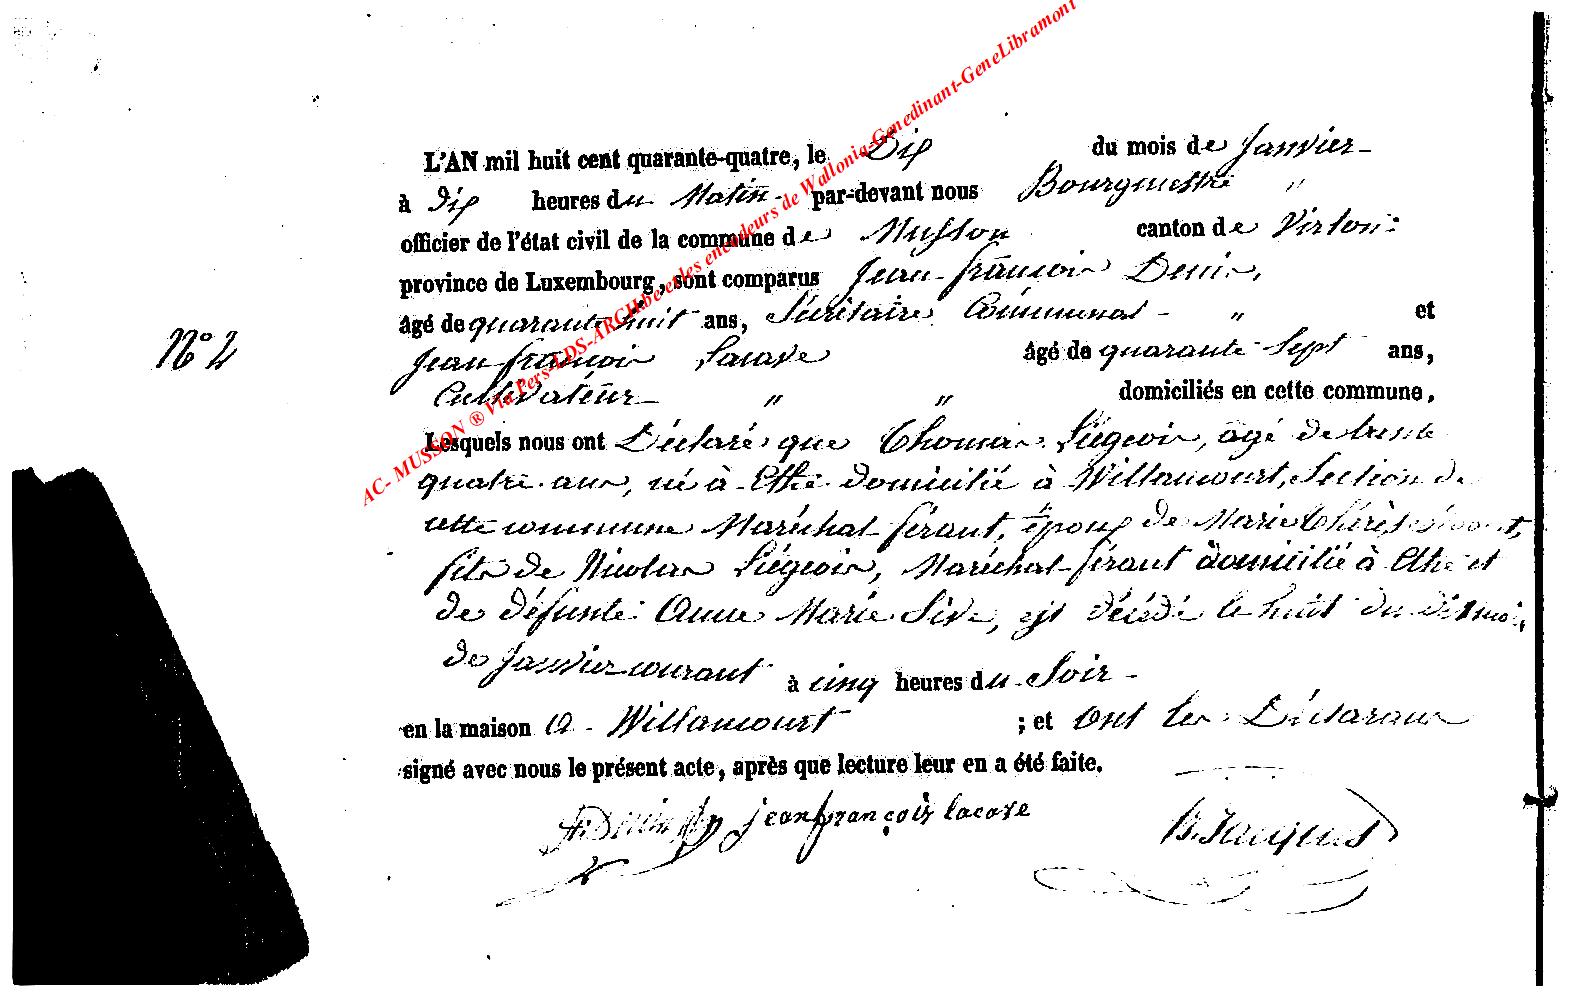 L'AN mil huit cent quarante-quatre, le Dix du mois de Janvier
à dix heures du Matin par-devant nous Bourgmestre "
officier de l'état civil de la commune de Musson canton de Virton
province de Luxembourg, sont comparus Jean-françois Denis,
âgé de quarante huit ans, Sécritaire Communal " et
N° 2
Jean françois Lacave âgé de quarante Sept ans,
Cultivateur " " domiciliés en cette commune.
Lesquels nous ont Déclaré que Thomas Liégeois, agé de trente
quatre ans, né à Ethe domicilié à Willancourt, Section de
cette commune Maréchal férant, époux de Marie Thérèse
fils de Nicolas Liégeois, Maréchal-férant domicilié à Ethe et
de défunte Anne Marie est décédé le huit du dit mois
de Janvier courant à cinq heures du Soir
en la maison a Willancourt ; et ont les Déclarans
signé avec nous le présent acte, après que lecture leur en a été faite.
jean françois lacave
B. Jacques
AC- MUSSON ® Via Pers-LDS-ARCH.be et les encodeurs de Wallonia-Genedinant-GeneLibramont